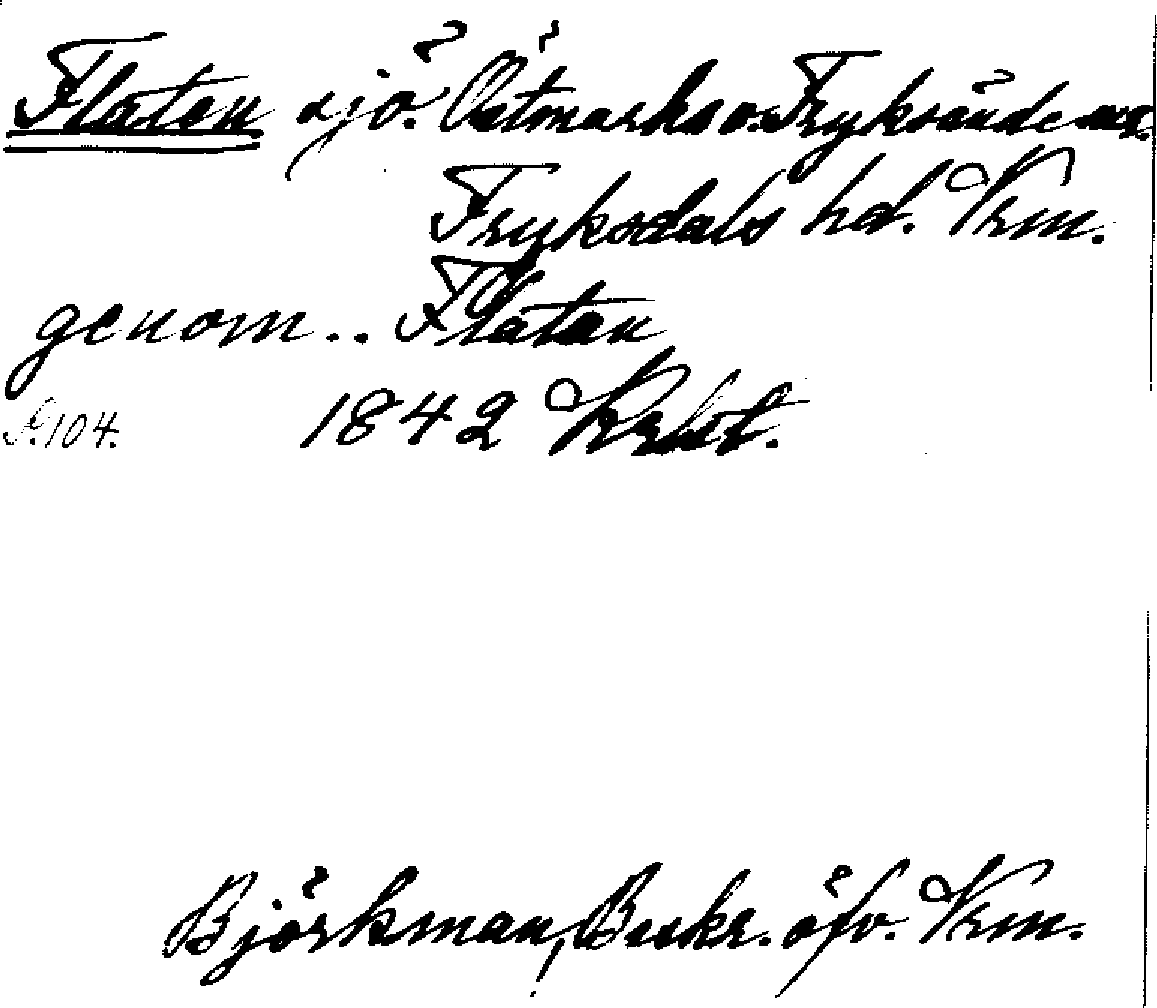 Flaten sjö. Östmarks o. Fryksände snr.
Fryksdals hd. Vrm.
genom .. Flaten
S. 104. 1842
Björkman, Beskr. öfv. Vrm.